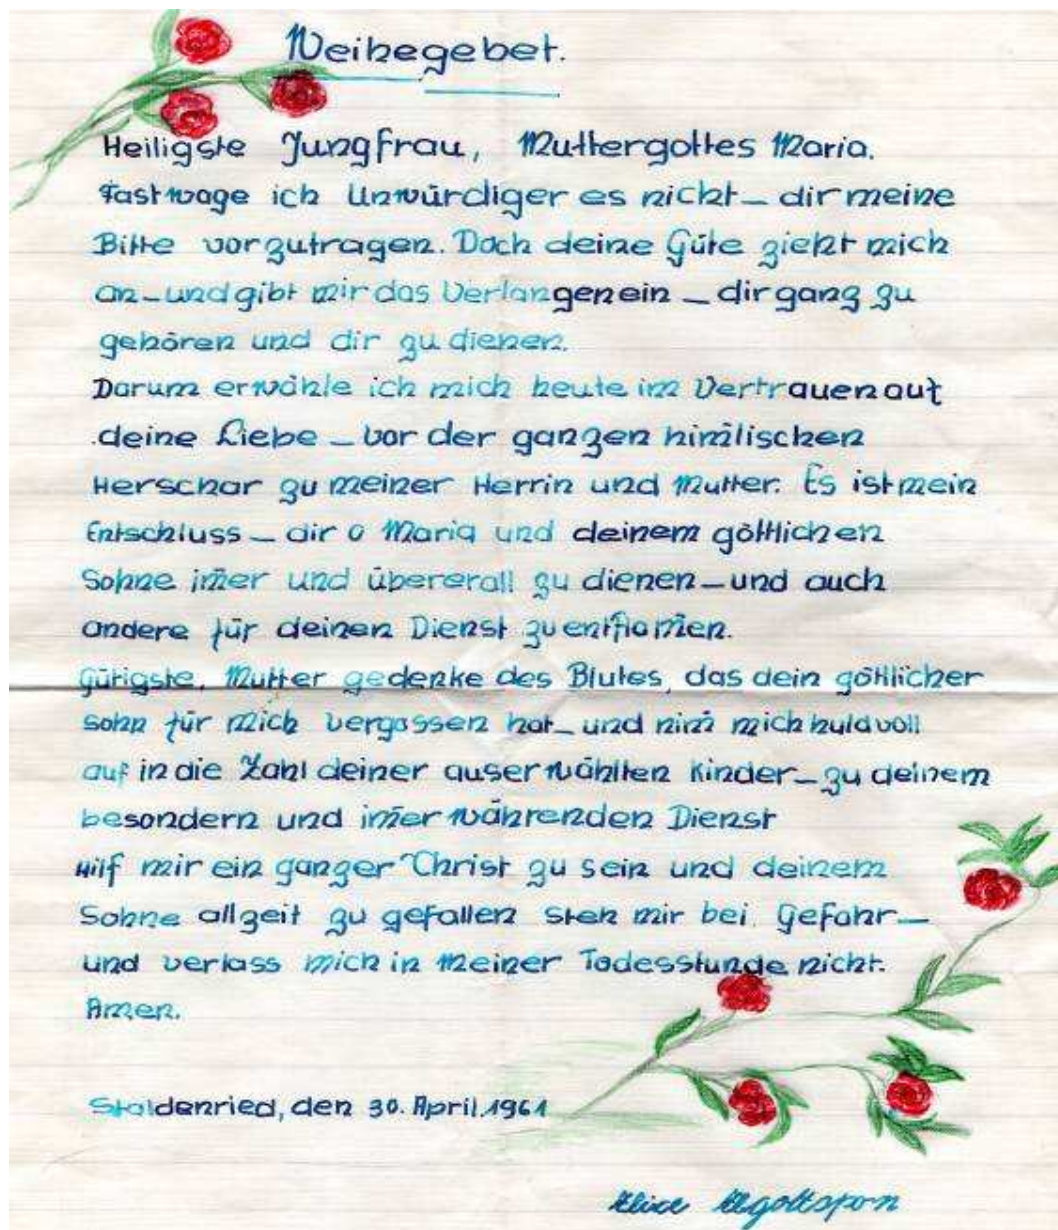 Weihegebet.
Heiligste Jungfrau, Muttergottes Maria.
Fast wage ich Unwürdiger es nicht – dir meine
Bitte vorzutragen. Doch deine Güte zieht mich
an – und gibt mir das Verlangen ein – dir ganz zu
gehören und dir zu dienen.
Darum erwähle ich mich heute im Vertrauen auf
deine Liebe – vor der ganzen him̄lischen
Herschar zu meiner Herrin und Mutter. Es ist mein
Entschluss – dir o Maria und deinem göttlichen
Sohne im̄er und übererall zu dienen – und auch
andere für deinen Dienst zu entflam̄en.
Gütigste, Mutter gedenke des Blutes, das dein göttlicher
sohn für mich vergossen hat – und nim̄ mich huldvoll
auf in die Zahl deiner auserwählten Kinder – zu deinem
besondern und im̄erwährenden Dienst
Hilf mir ein ganzer Christ zu sein und deinem
Sohne allzeit zu gefallen steh mir bei Gefahr –
und verlass mich in meiner Todesstunde nicht.
Amen.
Staldenried, den 30. April 1961
Alice Abgottspon